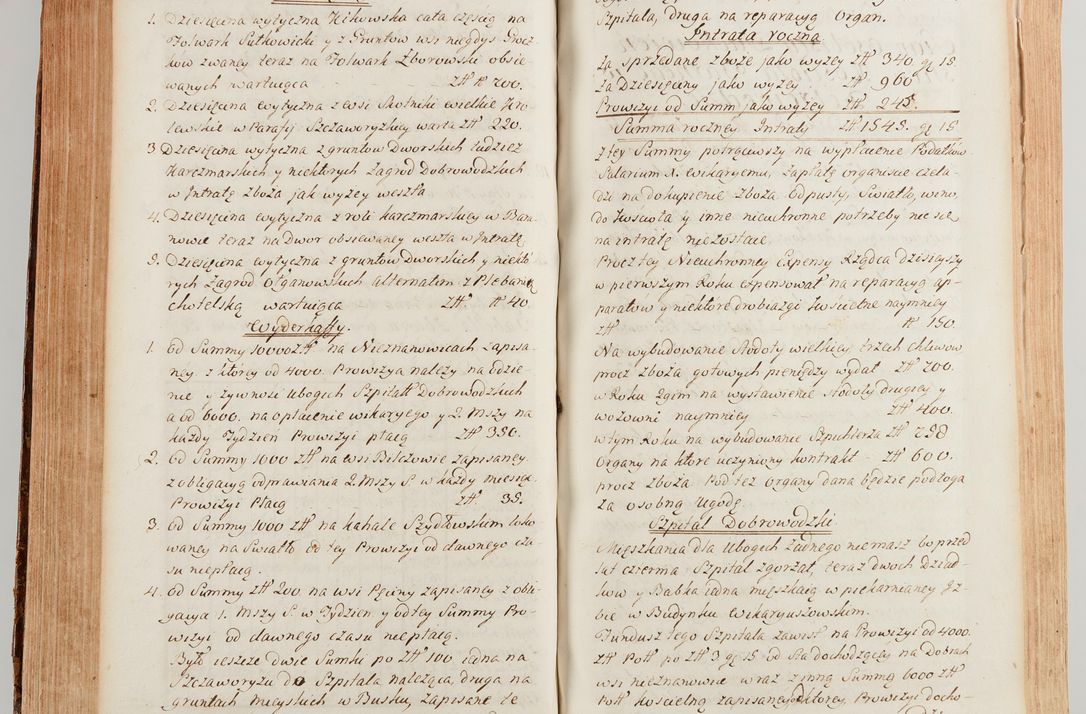 1. Dziesięcina wytyczna Zikowska cała częścią na
Folwark Sułkowicki y z Gruntow wsi niegdys Grocz
kow zwaney teraz na Folwark Zborowski obsie-
wanych wartuiąca Złł 700.
2. Dziesięcina wytyczna z wsi Skotniki wielkie Kro-
lewskie w Parafij Szczaworyzkiey warta Złł 220.
3 Dziesięcina wytyczna z gruntow Dworskich tudziez
Karczmarskich y niektorych Zagrod Dobrowodzkich
w Intratę zboża jak wyzey weszła
4. Dziesięcina wytyczna z roli karczmarskiey w Ban-
nowie teraz na Dwor obsiewaney weszła w Intratę
5. Dziesięcina wytyczna z gruntow Dworskich y niekto-
rych Zagrod Olganowskich alternatim z Plebanią
chotelską wartuiąca Złł. 40
Wyderkaffy.
1. Od Summy 10000 Złł na Nieznanowicach zapisa-
ney z ktorey od 4000. Prowizya nalezy na odzie-
nie y zywność ubogich Szpitala Dobrowodzkich
a od 6000. na opłacenie wikaryego y 2. Mszy na
każdy Tydzień Prowizyi płacą Złł 350.
2. Od Summy 1000 Złł na wsi Bilczowie zapisaney
z obligacyą odprawiania 2. Mszy S. w każdy miesiąc
Prowizyi Płacą Złł 35.
3. Od Summy 1000 Złł na kahale Szydłowskim loko
waney na Swiatło od tey Prowizyi od dawnego cza-
su niepłacą.
4. Od Summy Złł 200 na wsi Pęciny zapisaney z obli-
gacyą 1. Mszy S. w Tydzien y od tey Summy Pro-
wizyi od dawnego czasu niepłacą.
Było ieszcze dwie Sumki po Złł 100 iedna na
Szczaworyzu do Szpitala naleząca, druga na
gruntach Mieyskich w Busku, zapisane te
Szpitala, druga na reparacyą Organ.
Intrata roczna
Za sprzedane zboże jako wyzey Złł 340 gr 15.
Za Dziesięciny jako wyzey Złł 960
Prowizyi od Summ jako wyzey Złł 245.
Summa roczney Intraty Złł 1545. gr 15
z tey Summy potrąciwszy na wypłacenie Podatkow
Salarium X. wikaryemu, zapłatę organiście czela-
dzi na dokupienie zboża Odpusty, Swiatło, wino,
do kościoła y inne nieuchronne potrzeby nic się
na intratę niezostaie
Procz tey Nieuchronney Expensy Rządca dzisieyszy
w pierwszym Roku expensował na reparacyą ap-
paratow y niektore drobiazgi kościelne naymniey
Złł 150.
Na wybudowanie stodoły wielkiey trzech chlewow
procz zboża gotowych pieniędzy wydał Złł 700.
w Roku 2gim na wystawienie stodoły drugiey y
wozowni naymniey Złł 400.
w tym Roku na wybudowanie Szpichlerza Złł 758
Organy na ktore uczyniony kontrakt - Złł 600.
procz zboża Pod tez organy dana będzie podłoga
za osobną ugodę.
Szpital Dobrowodzki.
Mięszkania dla Ubogich żadnego niemasz bo przed
lat czterma Szpital zgorzał, teraz dwoch dziad-
kow y Babka iedna mięszkaią w piekarnianey Iz-
bie w Budynku wikaryuszowskim.
Fundusz tego Szpitala zawisł na Prowizyi od 4000.
Złł Poll po Złł 3 gr 15 od Sta dochodzącey na Dobrach
wsi nieznanowice wraz z inną Summą 6000 Złł
Poll kościelną zapisaney, ktorey Prowizyi docho-